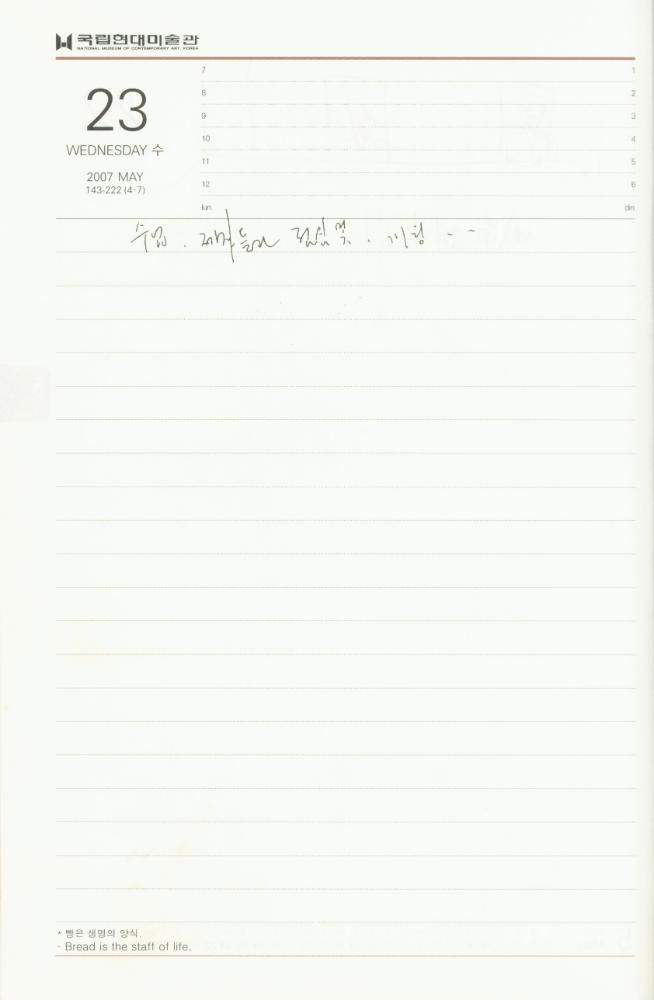 국립현대미술관
NATIONAL MUSEUM OF CONTEMPORARY ART, KOREA
23
WEDNESDAY 수
2007 MAY
143-222 (4·7)
7 1
8 2
9 3
10 4
11 5
12 6
lun. din.
수업.
* 빵은 생명의 양식.
- Bread is the staff of life.